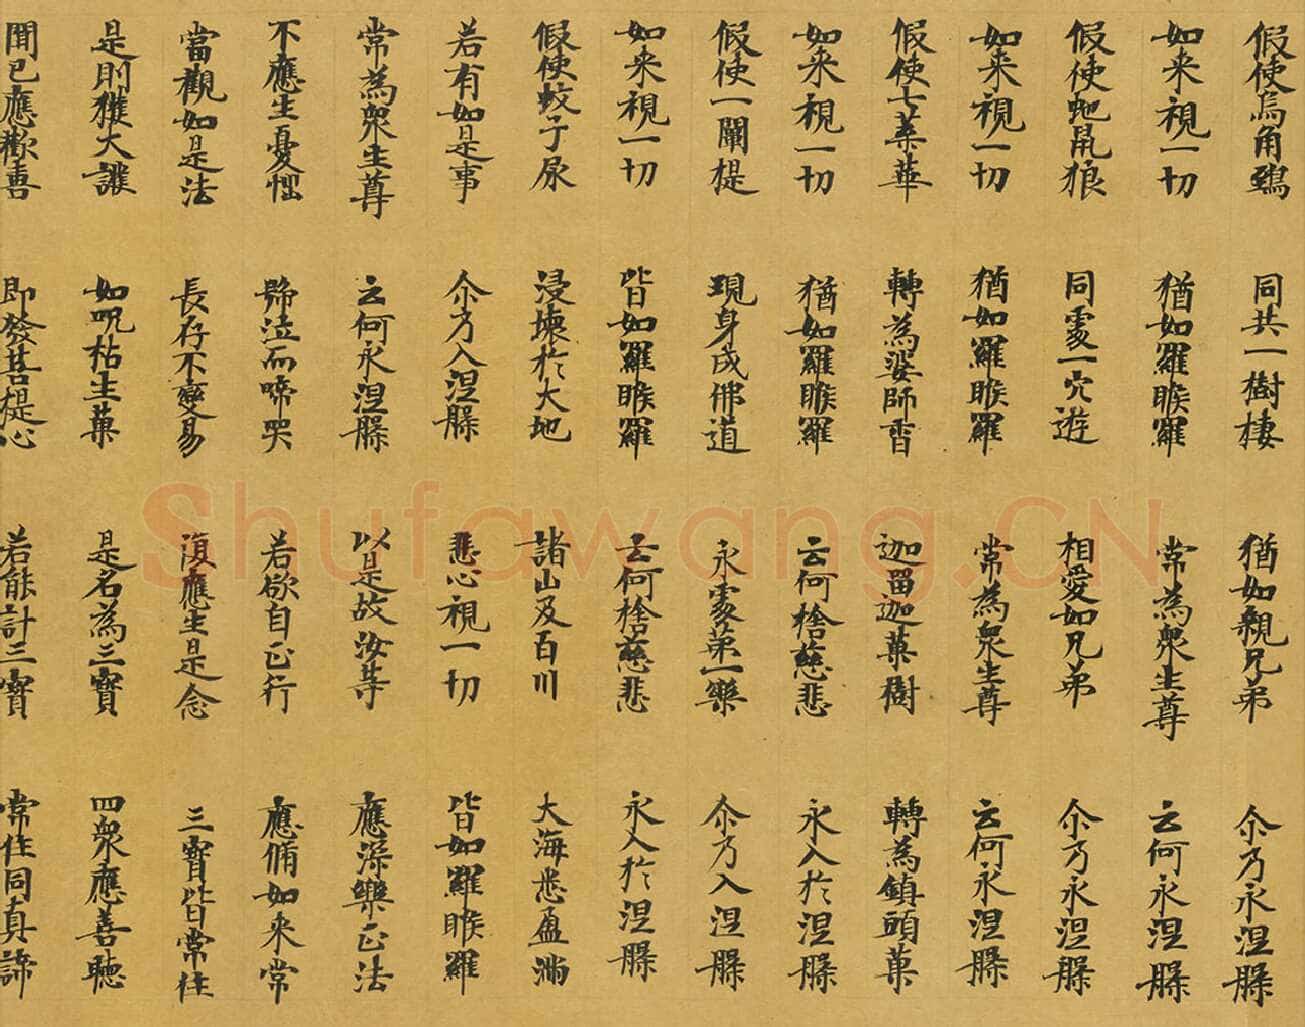 假使烏角鵄 同共一樹棲 猶如親兄弟 尒乃永涅槃
如来視一切 猶如羅睺羅 常為衆生尊 云何永涅槃
假使虵鼠狼 同處一穴遊 相愛如兄弟 尒乃永涅槃
如来視一切 猶如羅睺羅 常為衆生尊 云何永涅槃
假使七葉華 轉為婆師香 迦留迦菓樹 轉為鎮頭菓
如来視一切 猶如羅睺羅 云何捨慈悲 永入於涅槃
假使一闡提 現身成佛道 永處第一樂 尒乃入涅槃
如来視一切 皆如羅睺羅 云何捨慈悲 永入於涅槃
假使蚊子尿 浸壞於大地 諸山及百川 大海悉盈滿
若有如是事 尒乃入涅槃 悲心視一切 皆如羅睺羅
常為衆生尊 云何永涅槃 以是故汝等 應深樂正法
不應生憂惱 號泣而啼哭 若欲自正行 應脩如来常
當觀如是法 長存不變易 復應生是念 三寶皆常住
是則獲大護 如呪枯生菓 是名為三寶 四衆應善聽
聞已應歡喜 即發菩提心 若能計三寶 常住同真諦
Shufawang.CN